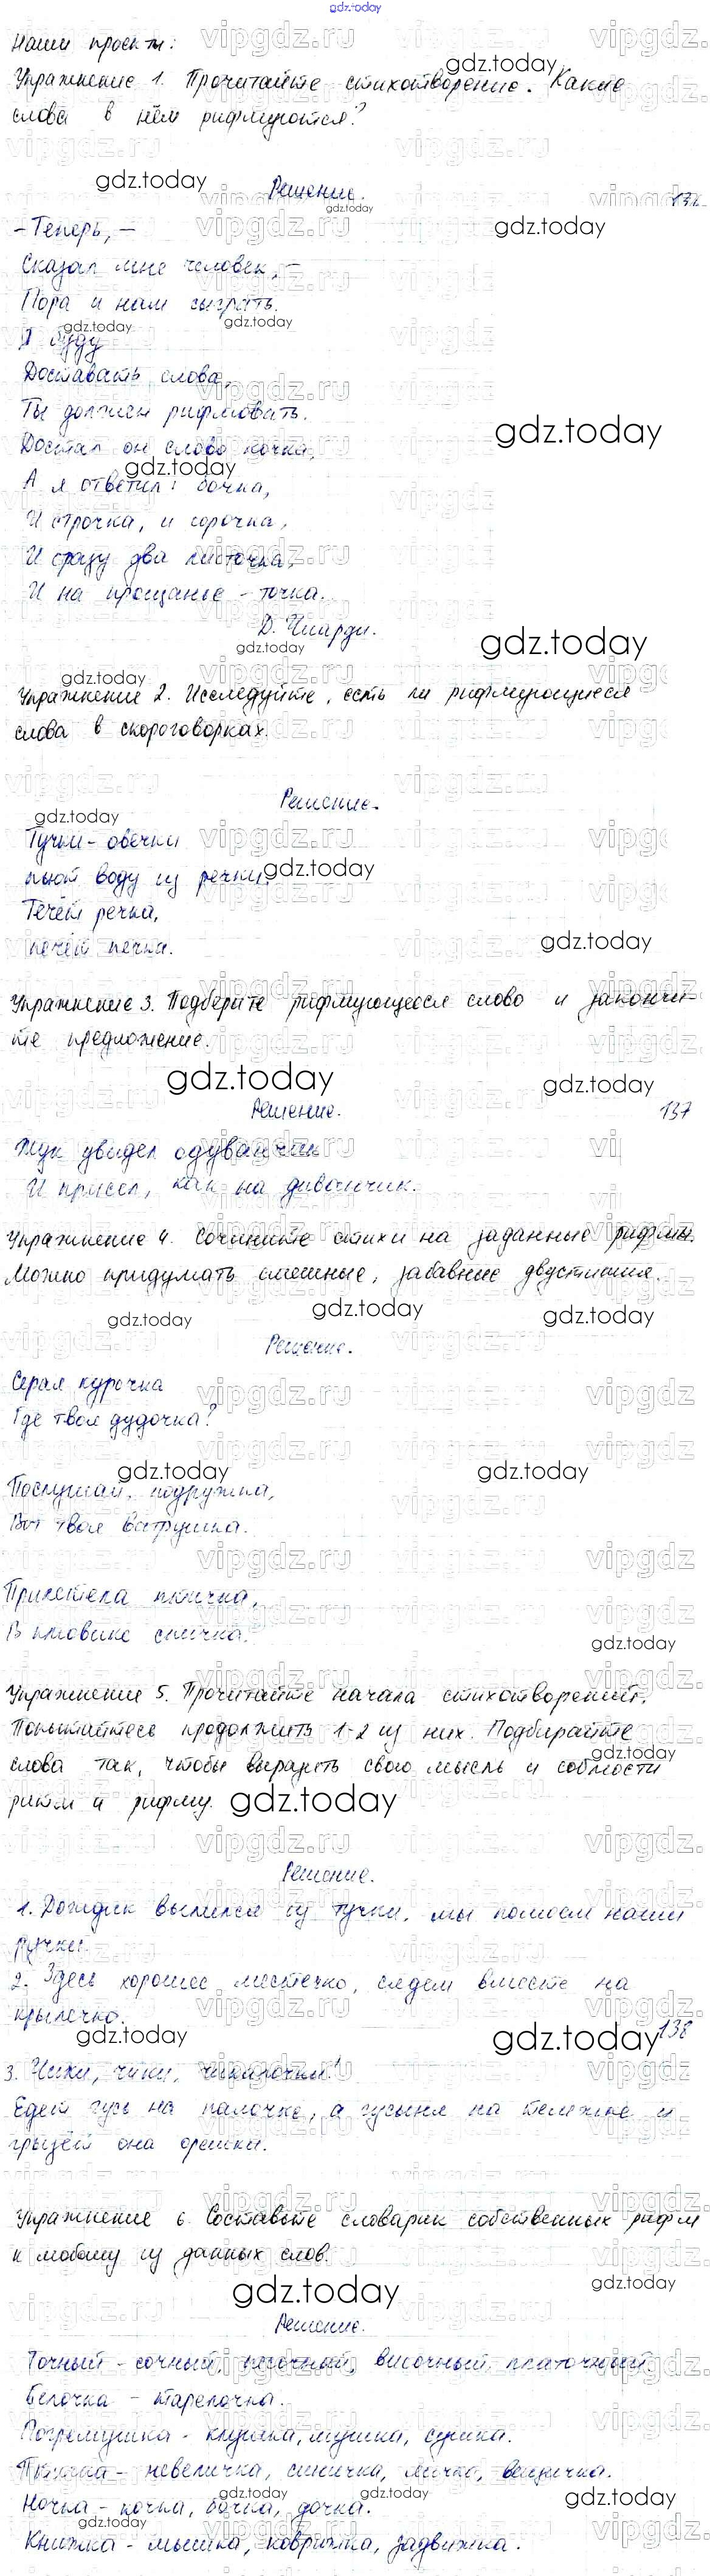 gdz.today
Наши проекты:
Упражнение 1. Прочитайте стихотворение. Какие
слова в нём рифмуются?
Решение.
- Теперь, -
Сказал мне человек, -
Пора и нам сыграть.
Я буду
Доставать слова,
Ты должен рифмовать.
Достал он слово кочка,
А я ответил: бочка,
И строчка, и сорочка,
И сразу два листочка,
И на прощанье - точка.
Д. Чиарди.
Упражнение 2. Исследуйте, есть ли рифмующиеся
слова в скороговорках.
Решение.
Тучки - овечки
пьют воду из речки.
Течёт речка,
печёт печка.
Упражнение 3. Подберите рифмующееся слово и закончи-
те предложение.
Решение.
137
Жук увидел одуванчик
И присел, как на диванчик.
Упражнение 4. Сочините стихи на заданные рифмы.
Можно придумать смешные, забавные двустишия.
Решение.
Серая курочка
Где твоя дудочка?
Послушай, подружка,
Вот твоя ватрушка.
Прилетела птичка,
В клювике спичка.
Упражнение 5. Прочитайте начала стихотворений.
Попытайтесь продолжить 1-2 из них. Подбирайте
слова так, чтобы выразить свою мысль и соблюсти
ритм и рифму.
Решение.
1. Дождик вылился из тучки, мы помоем наши
ручки.
2. Здесь хорошее местечко, сядем вместе на
крылечко.
138
3. Чики, чики, чикалочки!
Едет гусь на палочке, а гусыня на тележке и
грызёт она орешки.
Упражнение 6. Составьте словарик собственных рифм
к любому из данных слов.
Решение.
Точный - сочный, песочный, височный, платочный.
Белочка - тарелочка.
Погремушка - клушка, мушка, сушка.
Птичка - невеличка, синичка, личко, вещичка.
Ночка - кочка, бочка, дочка.
Книжка - мышка, коврижка, задвижка.